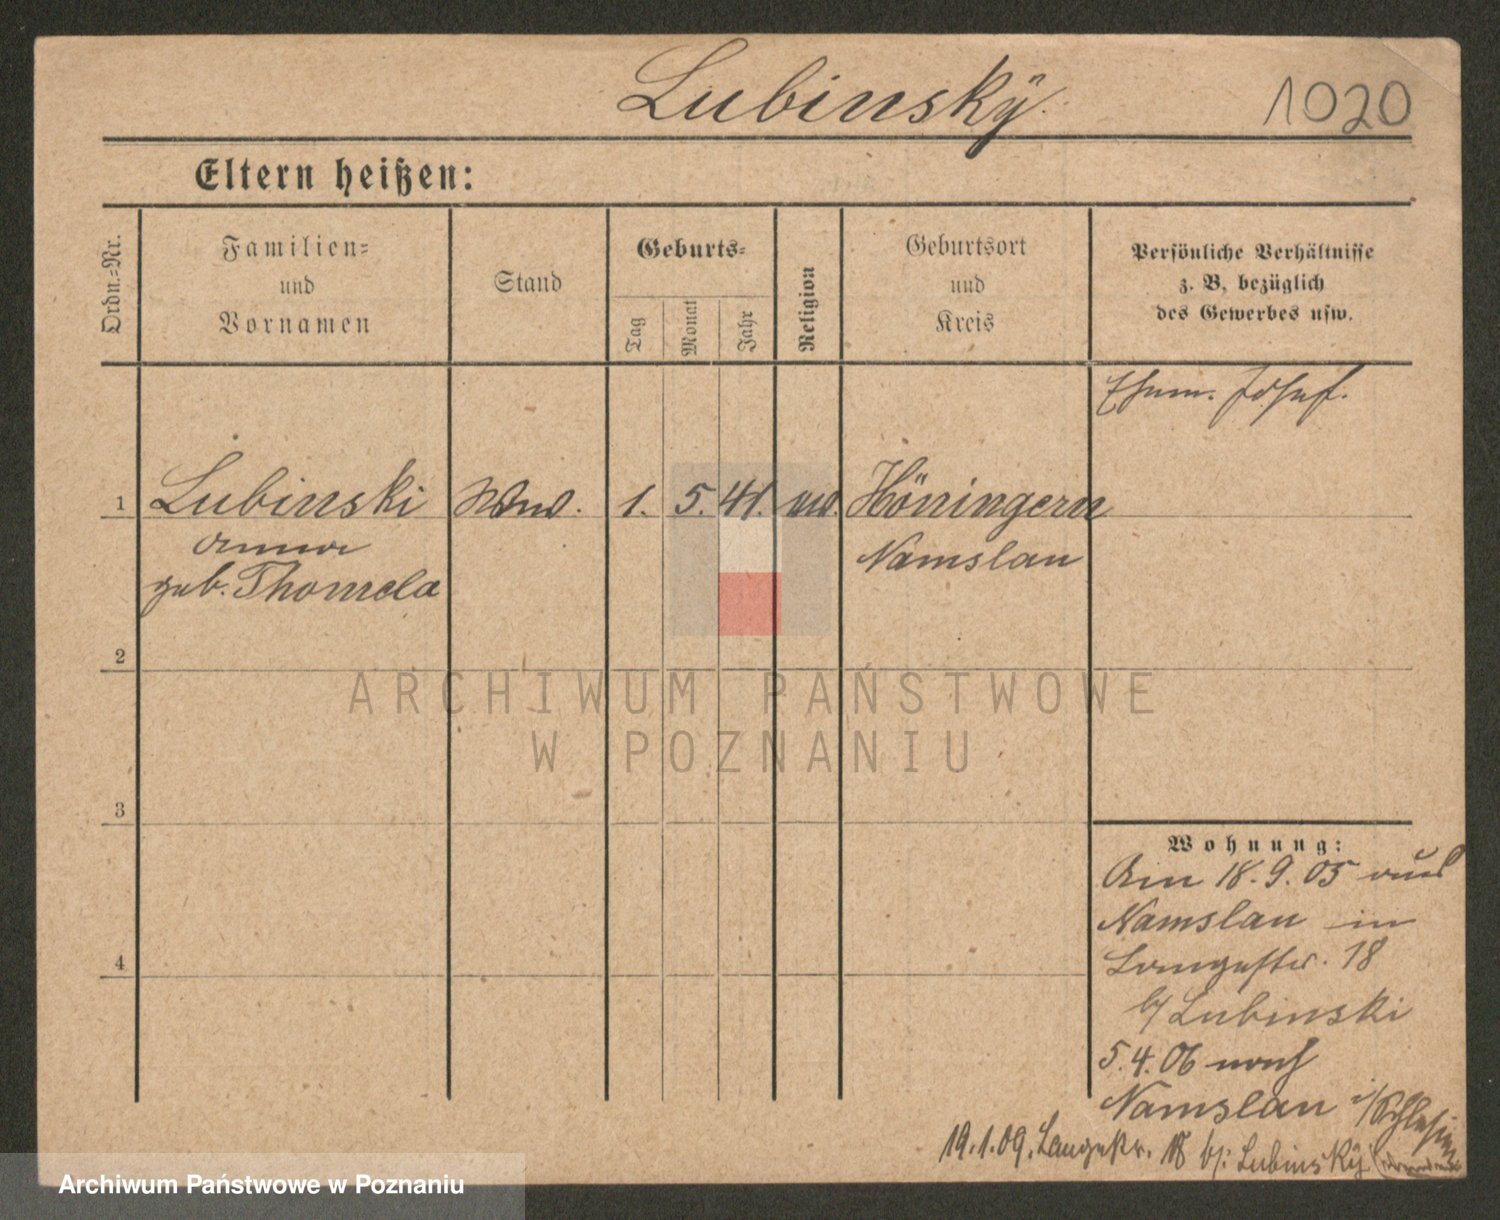 Lubinskÿ
1020
Eltern heißen:
Ordn.=Nr.
Familien=
und
Vornamen
Stand
Geburts=
Tag
Monat
Jahr
Religion
Geburtsort
und
Kreis
Persönliche Verhältnisse
z. B. bezüglich
des Gewerbes usw.
Ehem. Josef.
1
Lubinski
Anna
geb. Thomela
Wwe.
1. 5. 41.
Höningern
Namslau
2
3
4
Wohnung:
Am 18.9.05 aus
Namslau in
Langestr. 18
b/ Lubinski
5.4.06 nach
Namslau i/Schlesien
19.1.09. Langestr. 18 b/: Lubinskÿ
ARCHIWUM PAŃSTWOWE
W POZNANIU
Archiwum Państwowe w Poznaniu